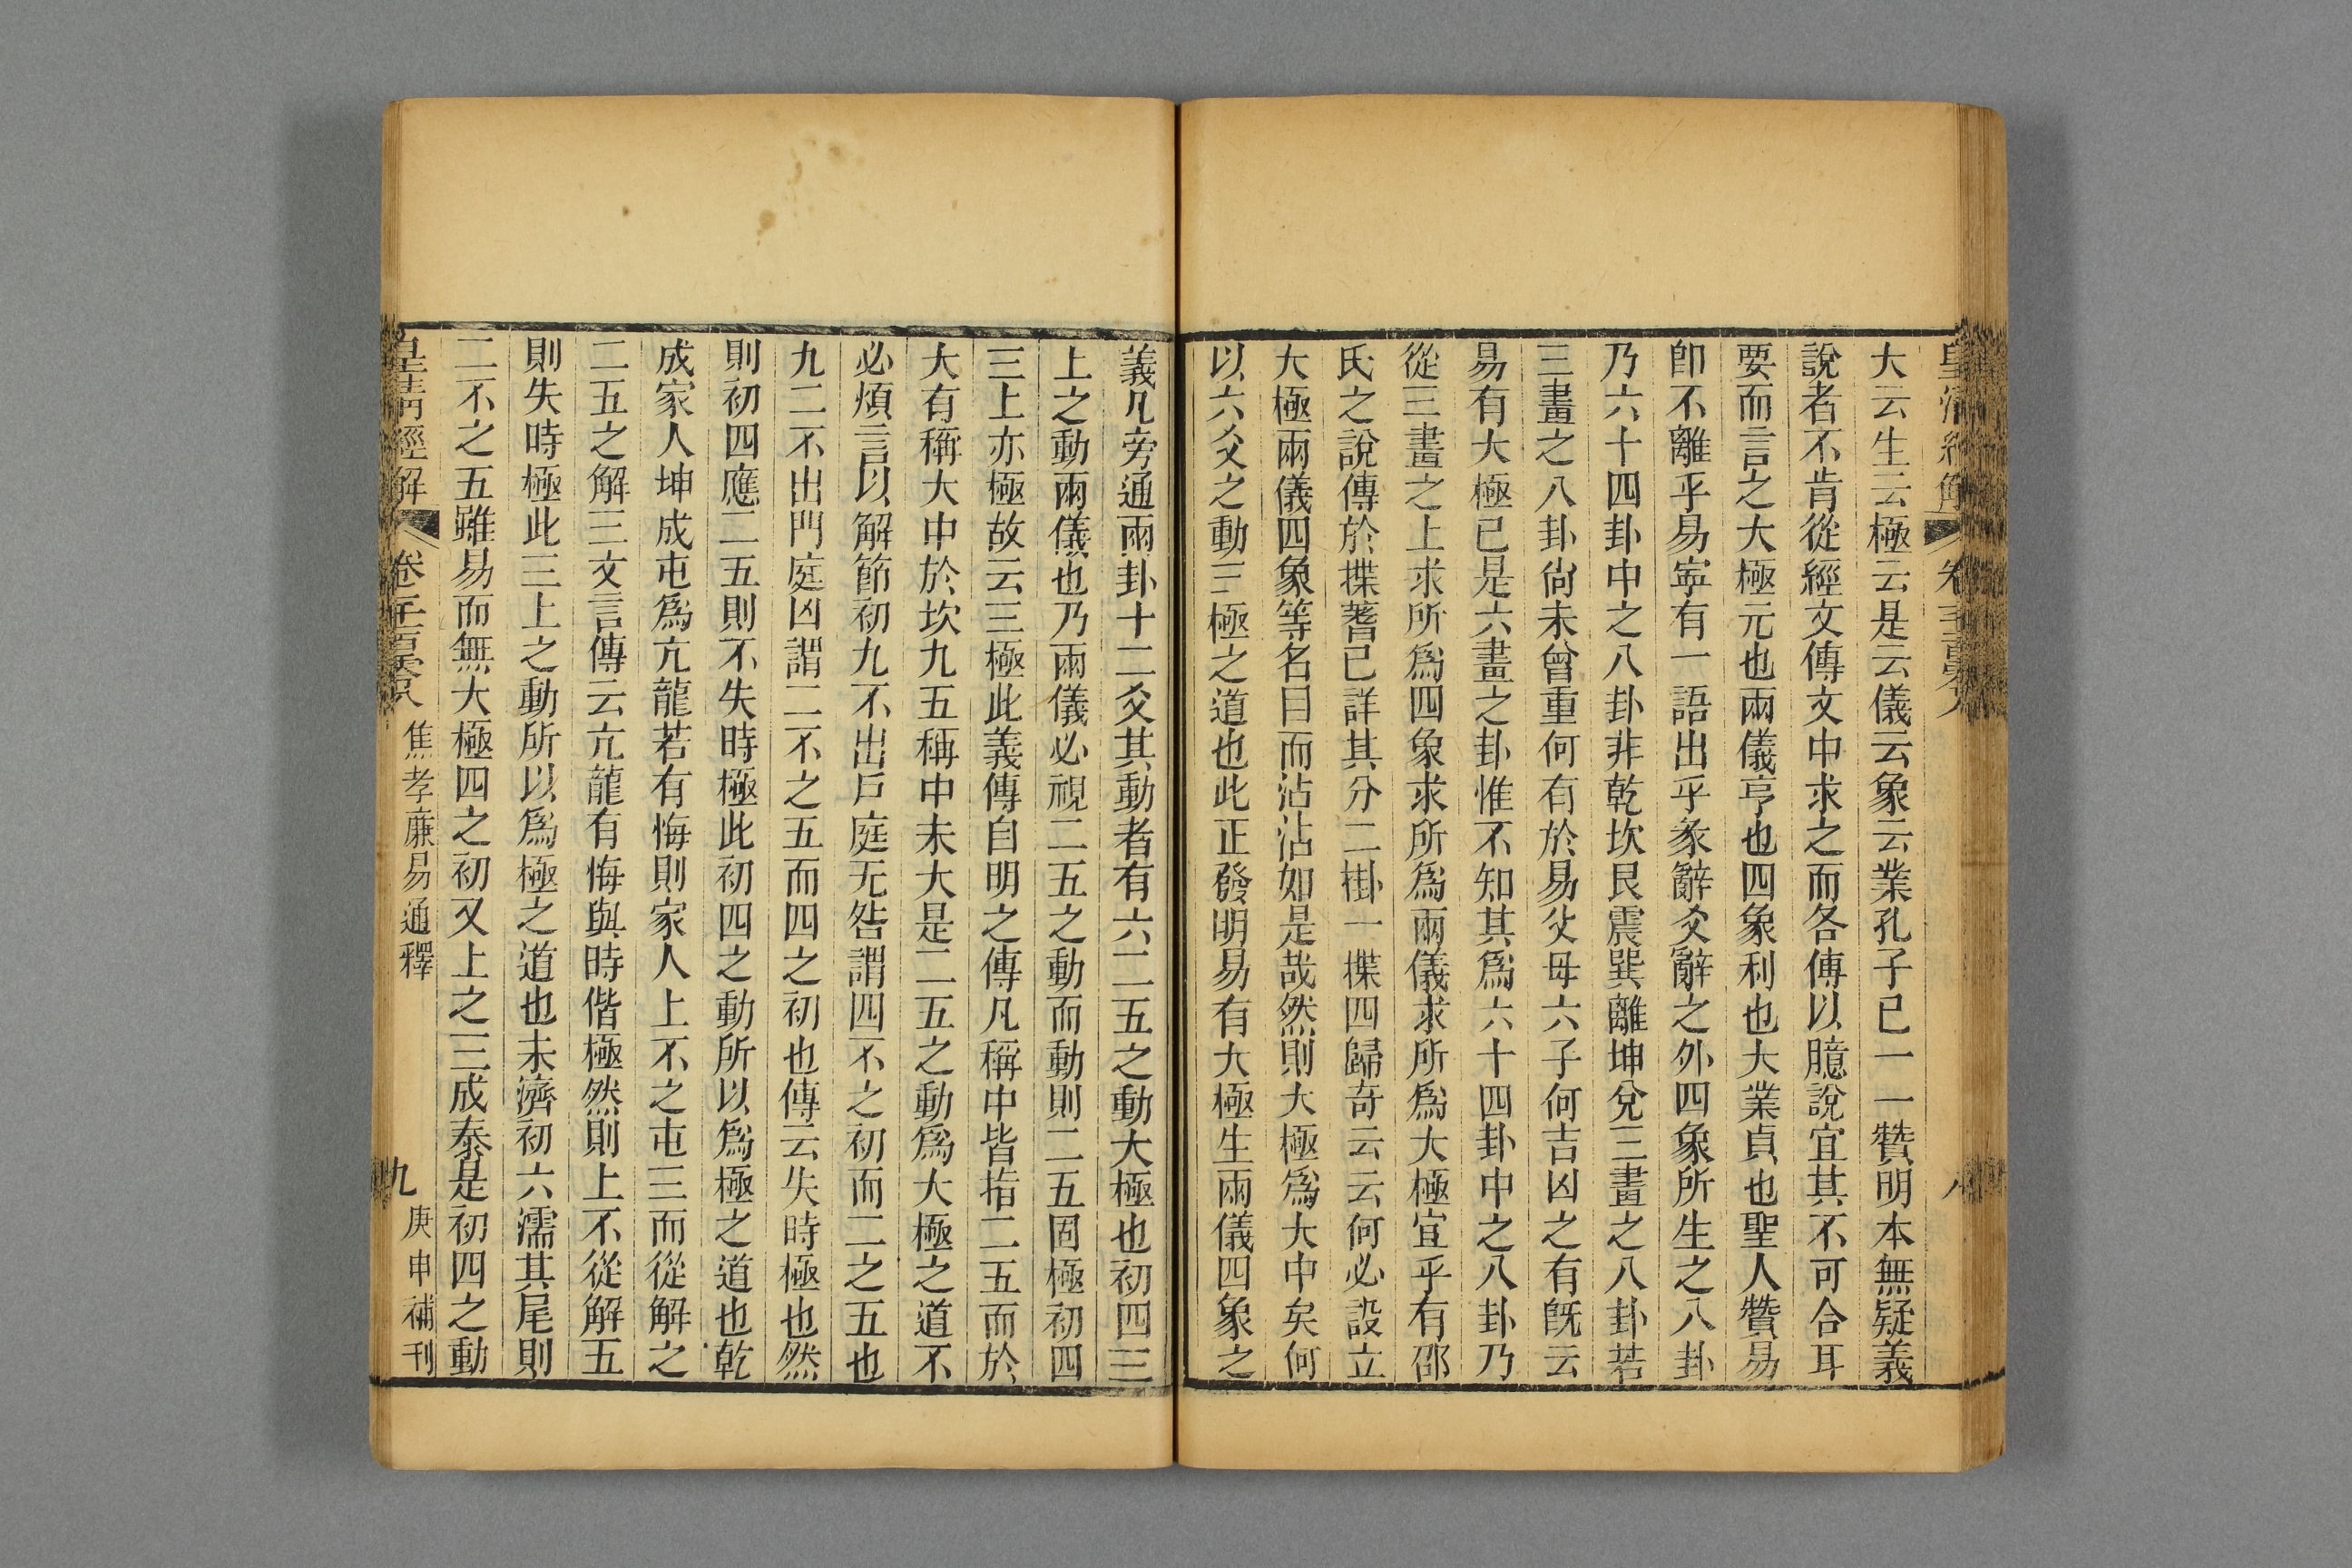 大云生云極云是云儀云象云業孔子已一一贊明本無疑義
說者不肯從經文傳文中求之而各傳以臆說宜其不可合耳
要而言之大極元也兩儀亨也四象利也大業貞也聖人贊易
卽不離乎易寧有一語出乎彖辭爻辭之外四象所生之八卦
乃六十四卦中之八卦非乾坎艮震巽離坤兌三畫之八卦若
三畫之八卦尙未曾重何有於易父母六子何吉凶之有旣云
易有大極已是六畫之卦惟不知其爲六十四卦中之八卦乃
從三畫之上求所爲四象求所爲兩儀求所爲大極宜乎有邵
氏之說傳於揲蓍已詳其分二掛一揲四歸奇云云何必設立
大極兩儀四象等名目而沾沾如是哉然則大極爲大中矣何
以六爻之動三極之道也此正發明易有大極生兩儀四象之
義凡旁通兩卦十二爻其動者有六二五之動大極也初四三
上之動兩儀也乃兩儀必視二五之動而動則二五固極初四
三上亦極故云三極此義傳自明之傳凡稱中皆指二五而於
大有稱大中於坎九五稱中未大是二五之動爲大極之道不
必煩言以解節初九不出戶庭无咎謂四不之初而二之五也
九二不出門庭凶謂二不之五而四之初也傳云失時極也然
則初四應二五則不失時極此初四之動所以爲極之道也乾
成家人坤成屯爲亢龍若有悔則家人上不之屯三而從解之
二五之解三文言傳云亢龍有悔與時偕極然則上不從解五
則失時極此三上之動所以爲極之道也未濟初六濡其尾則
二不之五雖易而無大極四之初又上之三成泰是初四之動
皇淸經解 焦孝廉易通釋 九 庚申補刊